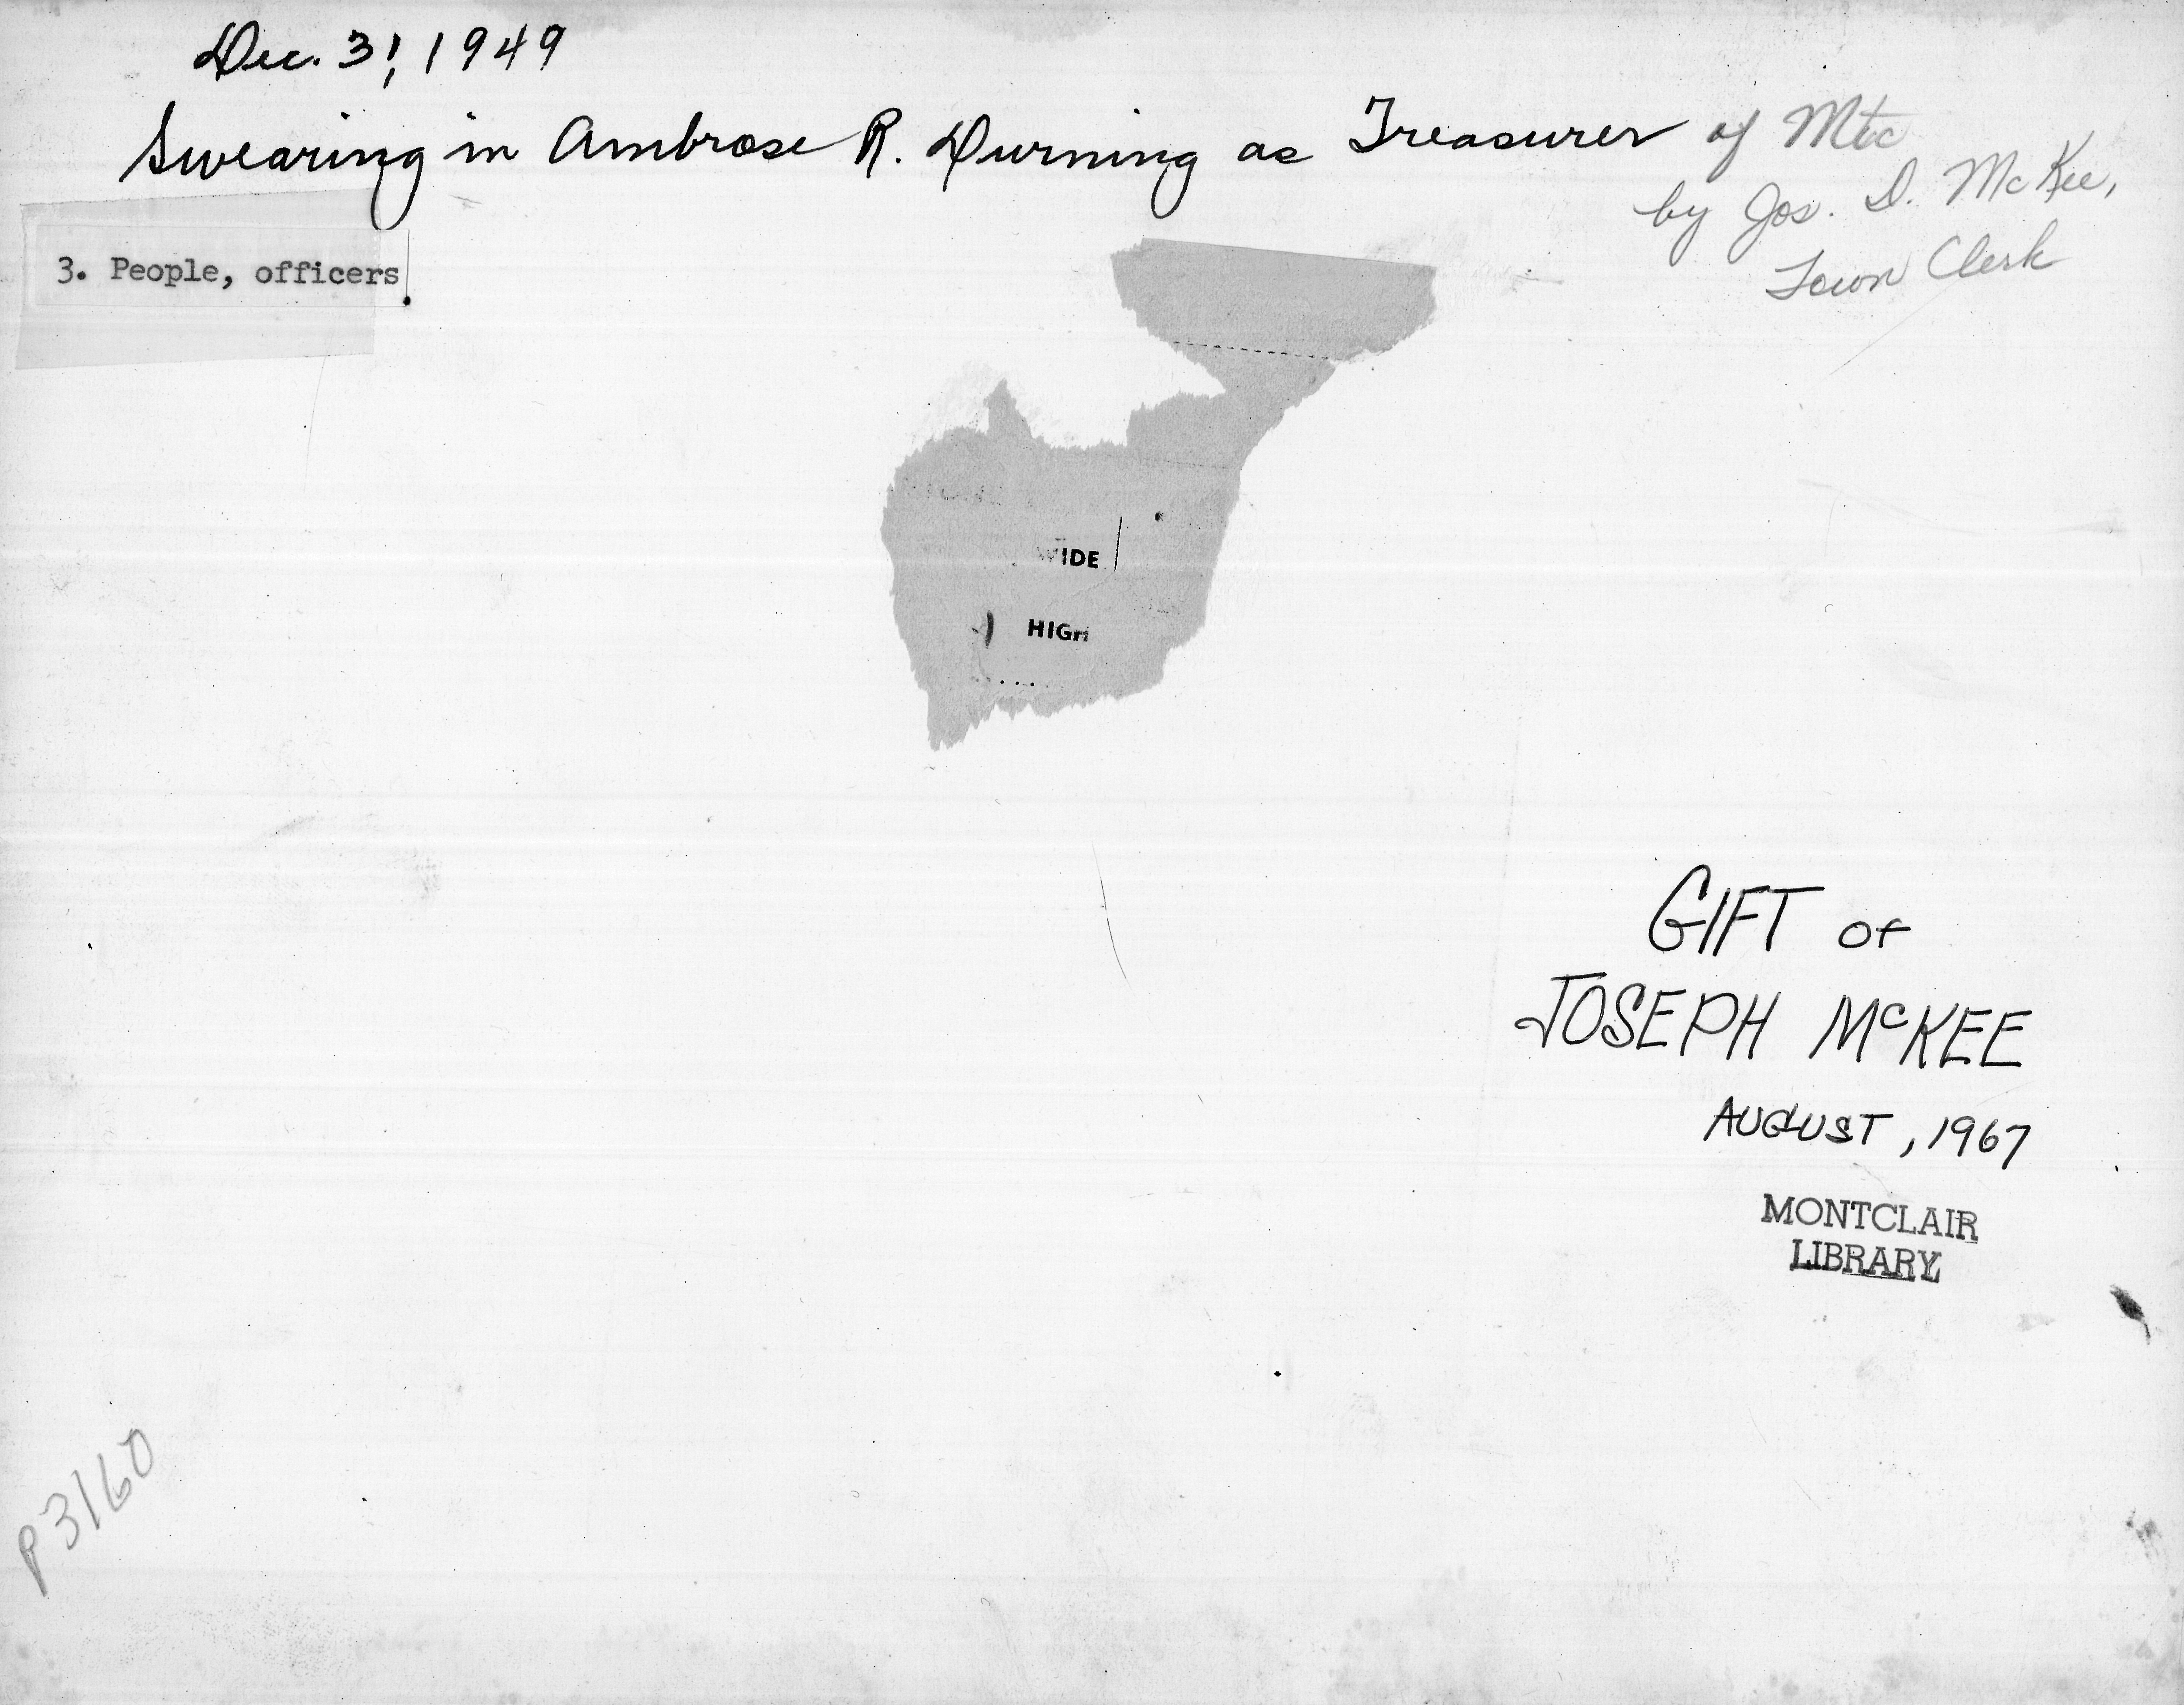 Dec. 31, 1949
Swearing in Ambrose R. Durning as Treasurer of Mtc
by Jos. D. McKee,
Town Clerk
3. People, officers
WIDE
HIGH
GIFT OF
JOSEPH McKEE
AUGUST, 1967
MONTCLAIR
LIBRARY
P3160